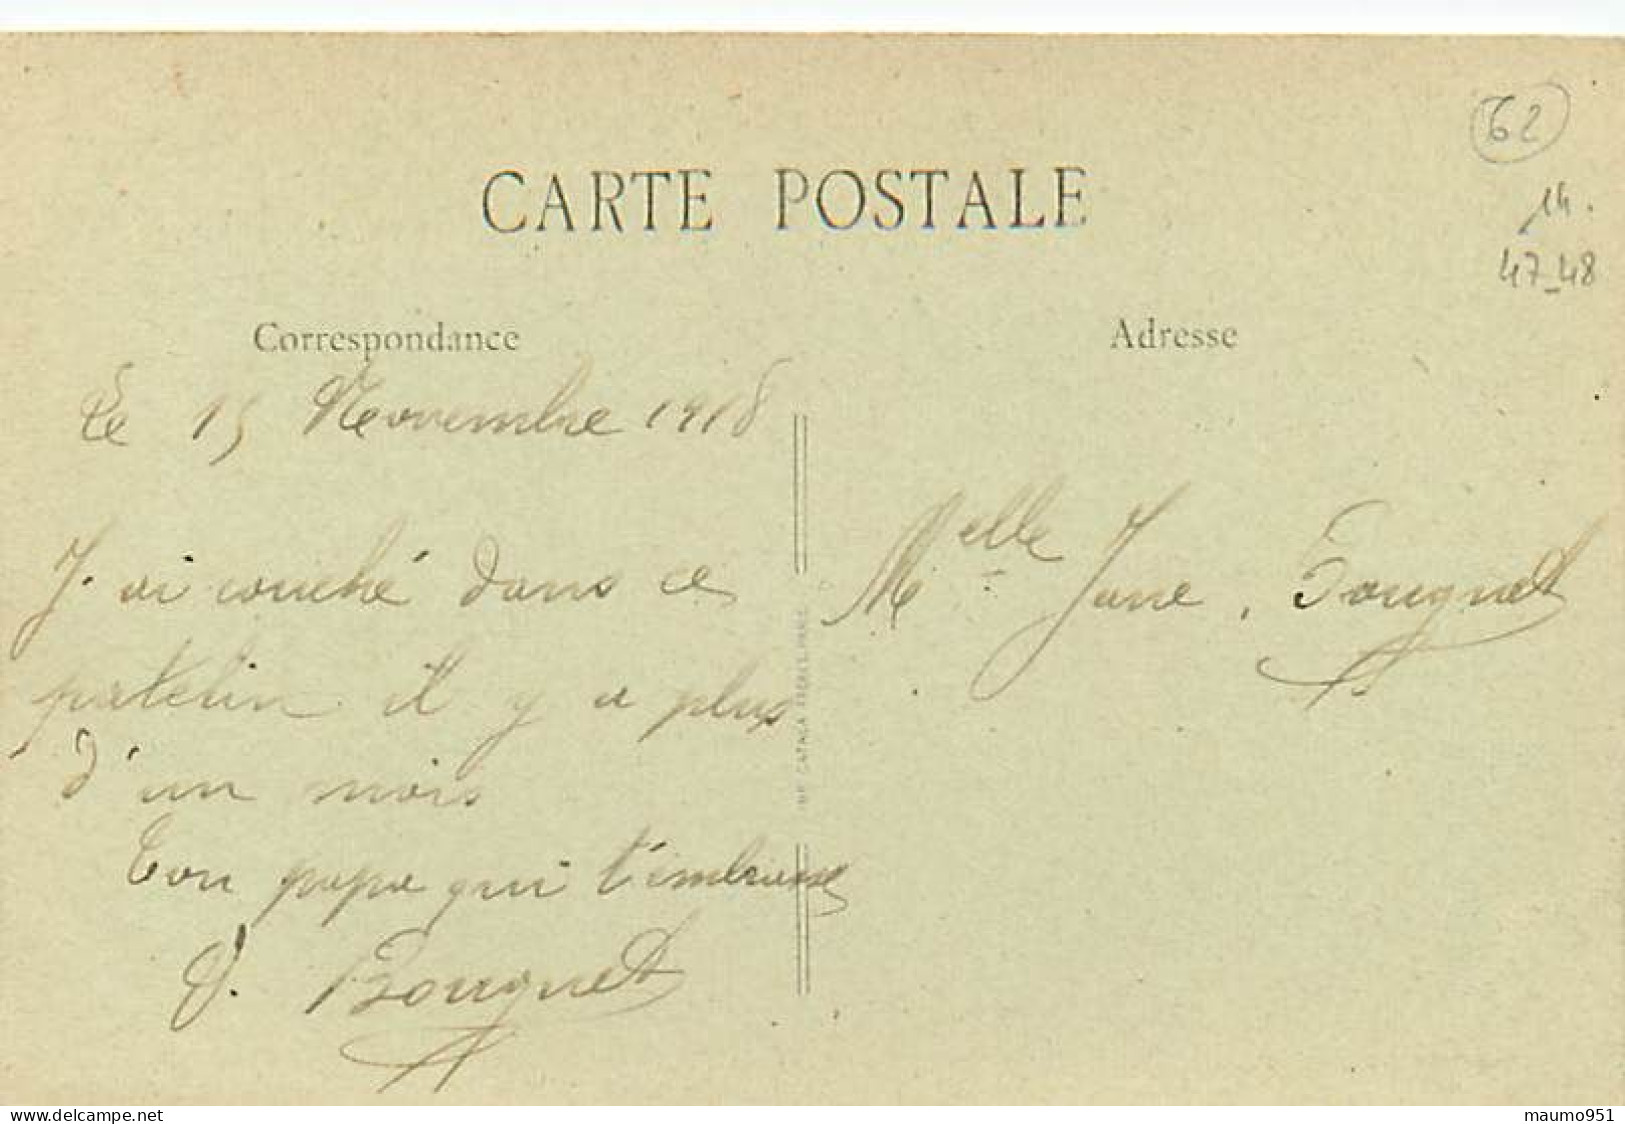 62
14.
47-48
CARTE POSTALE
Correspondance
Adresse
Le 15 Novembre 1918
J'ai couché dans ce
patelin il y a plus
d'un mois
Ton papa qui t'embrasse
J. Bouquet
Melle Jane Bouquet
IMP CATALA FRERES, PARIS
www.delcampe.net
maumo951